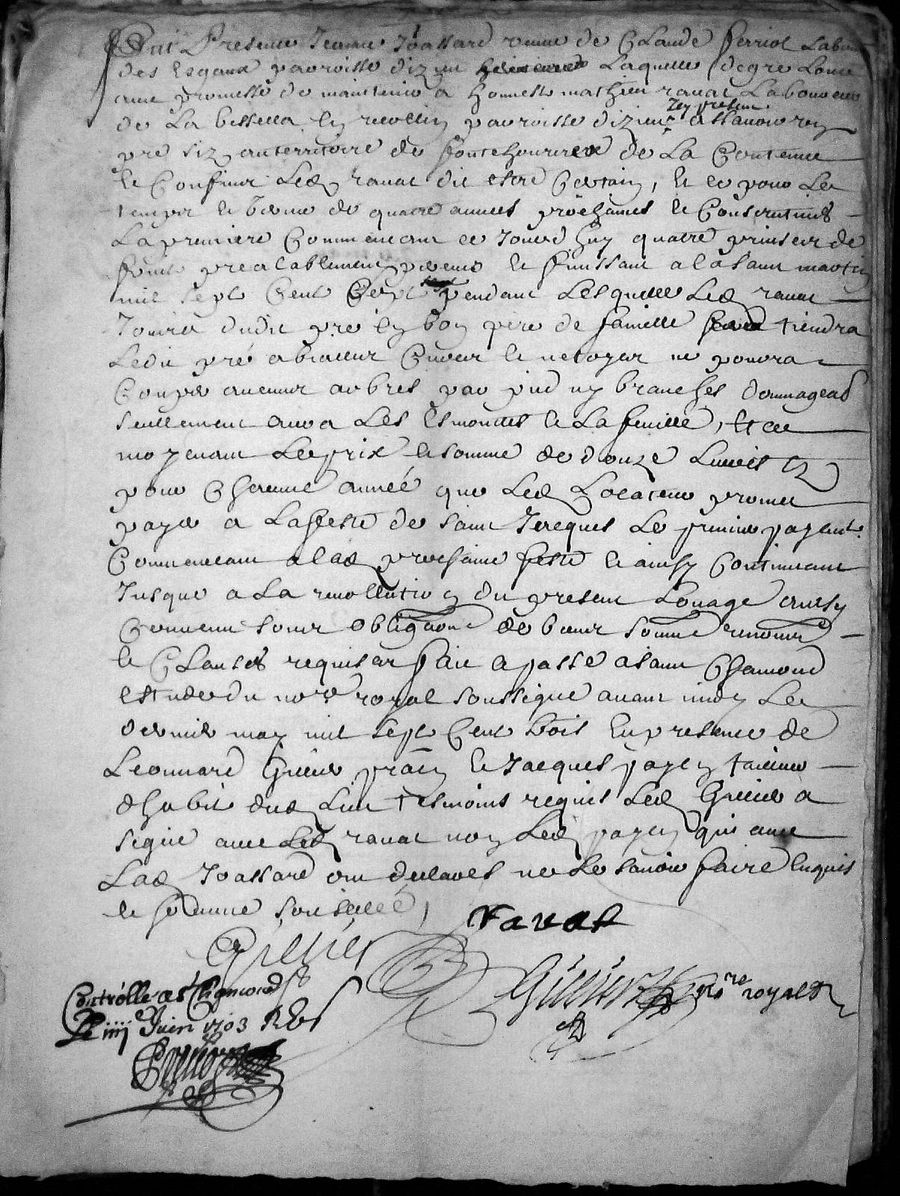 Fut Presente Jeanne Joassard vefve de Claude Ferriol Labour
des Esgaux parroisse dizieu Laquelle degre Loue
avec promesse de maintenir a honneste mathieu ravat Laboureur
de La bessella en parroisse dizieu Icy present assavoir un
pré sizé au territoire de de La Contenue
et Confins Led ravat dit estre Certain, Et ce pour Le
temps et terme de quatre années prochaines et Consecutives
La premiere Commencant ce Jourdhuy quatre prinses de
fruits prealablement prevenus et finissant a la saint martin
mil sept Cent sept pendant Lesquelles Led ravat
Jouira dudit pré En bon pere de famille tiendra
Ledit pré a et netoyer ne pourra
Couper aucuns arbres par pied ny branches domageables
seullement aura Les Esmondes et La feuille, Et ce
moyenant Le prix et somme de douze Livres
pour Chacune année que Led Locataire promet
payer a La feste de saint Jacques Le premier payent
Commencant a lad prochaine feste et ainsy Continuant
Jusque a La revollution du present Louage ainsy
Convenu sous obligaons de biens
et Clauses requises fait et passé a saint Chamond
estude du nore royal soussigné avant midy Le
dernier may mil sept Cent trois En presence de
Leonnard Grenier prain et Jacques payen
dhabit dud Lieu tesmoins requis Led Grenier a
signé avec Led ravat non Led payen qui avec
Lad Joassard ont declarés ne Le savoir faire Enquis
et
ravat
Grenier
nore royal
Controllé a St Chamond
Le iiii Juin 1703